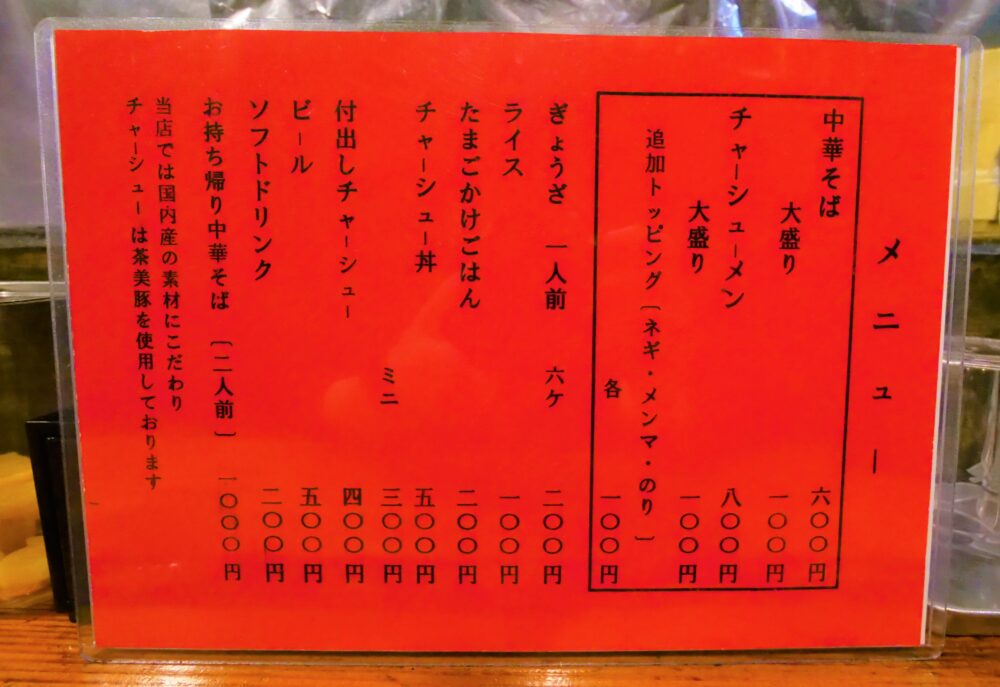 メニュー
中華そば 六〇〇円
大盛り 一〇〇円
チャーシューメン 八〇〇円
大盛り 一〇〇円
追加トッピング〔ネギ・メンマ・のり〕
各 一〇〇円
ぎょうざ 一人前 六ケ 二〇〇円
ライス 一〇〇円
たまごかけごはん 二〇〇円
チャーシュー丼 五〇〇円
ミニ 三〇〇円
付出しチャーシュー 四〇〇円
ビール 五〇〇円
ソフトドリンク 二〇〇円
お持ち帰り中華そば〔二人前〕 一〇〇〇円
当店では国内産の素材にこだわり
チャーシューは茶美豚を使用しております